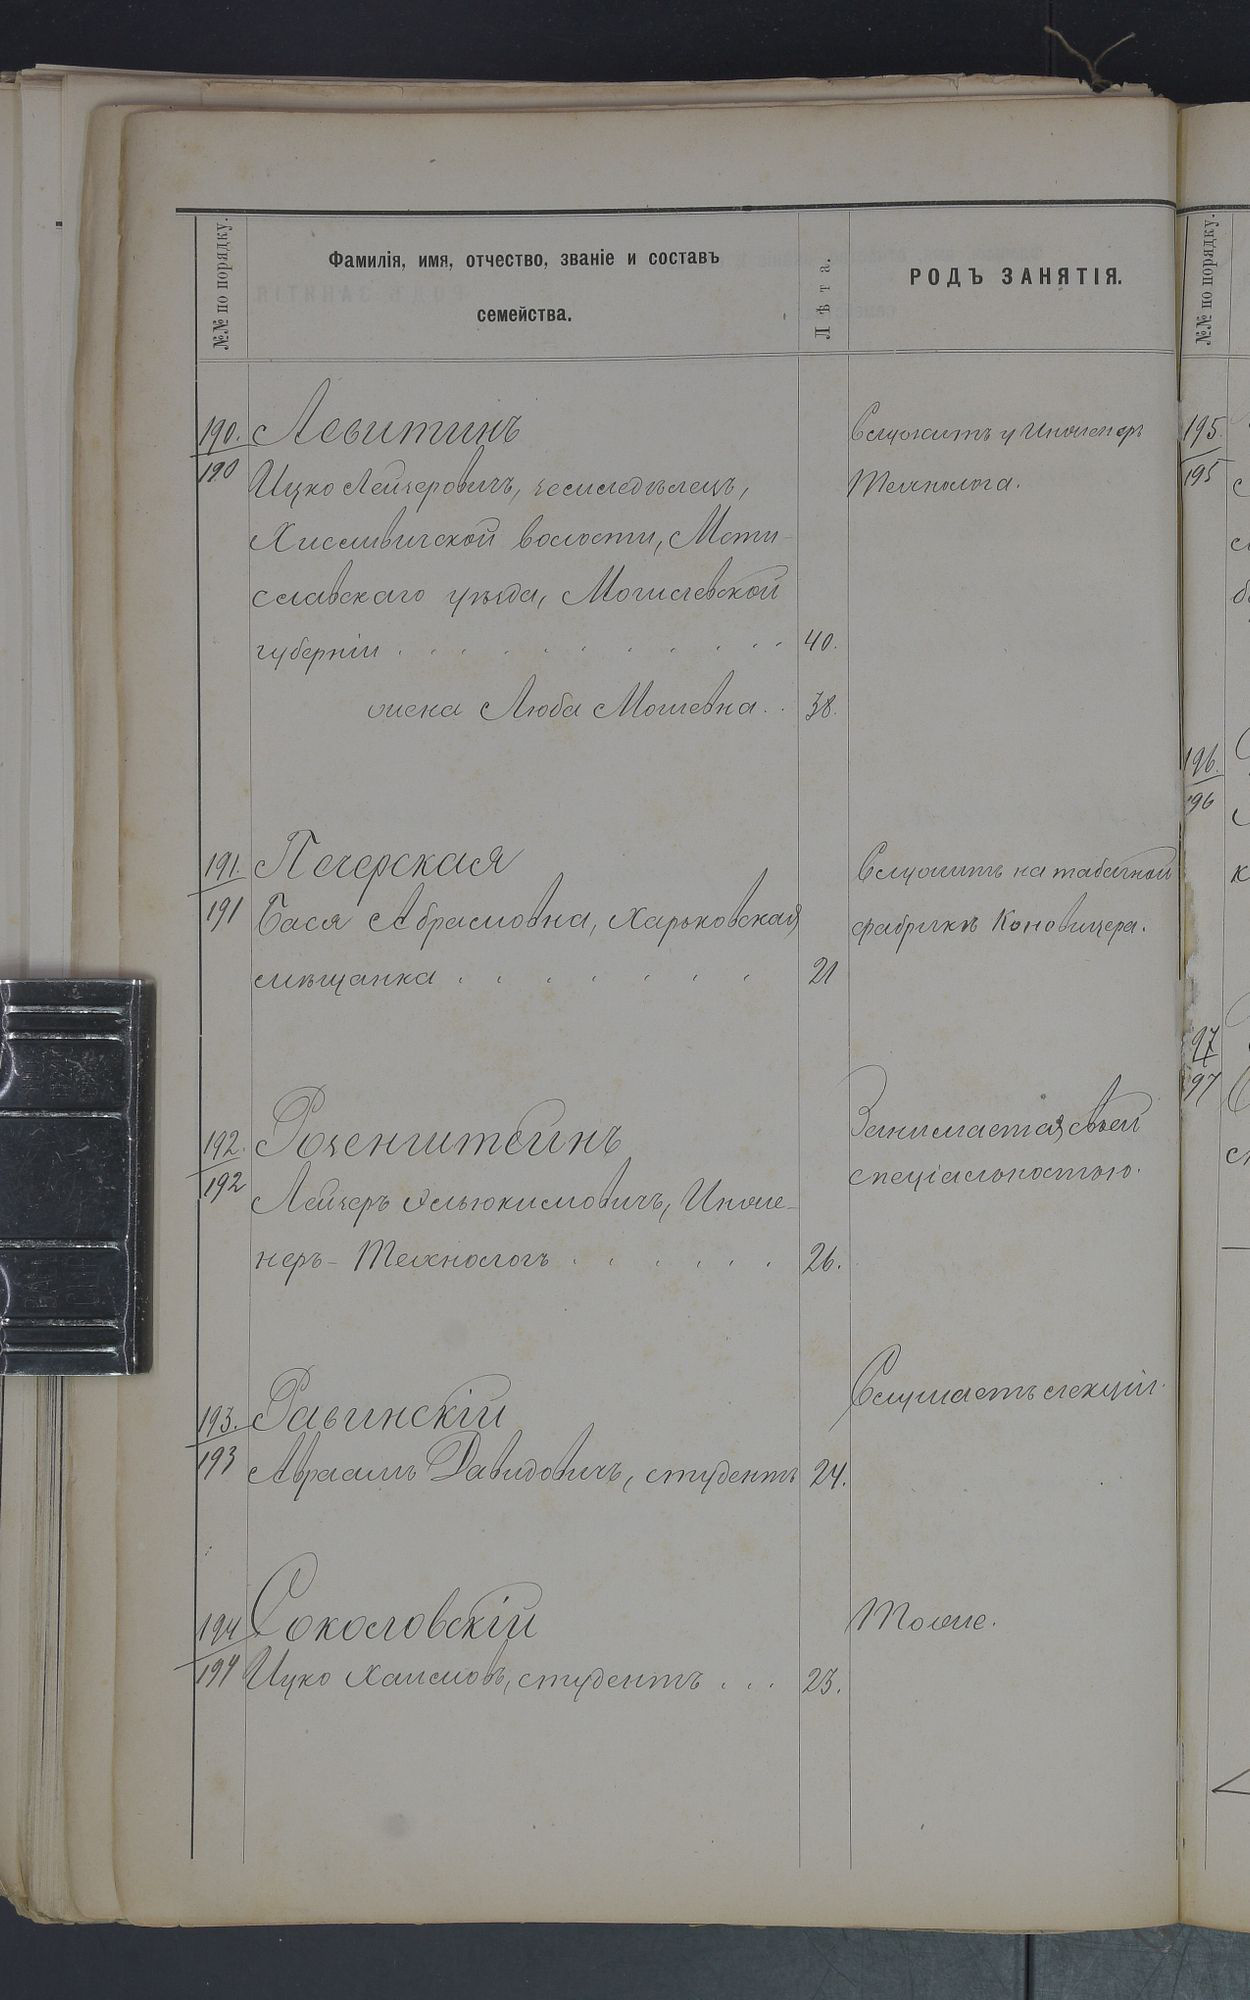 №№ по порядку.
Фамилія, имя, отчество, званіе и составъ
семейства.
Лѣта.
РОДЪ ЗАНЯТІЯ.
190. Левитинъ
Служитъ у Инженеръ
190 Ицко Лейзеровичъ, земледѣлецъ,
Технолога.
Хиславичской волости, Мсти-
славскаго уѣзда, Могилевской
губерніи . . . . . . . . . . 40.
жена Люба Мошевна . . 38.
191. Печерская
Служитъ на табачной
191 Бася Абрамовна, Харьковская
фабрикѣ Коновицера.
мѣщанка . . . . . . . 21
192. Розенштейнъ
Занимается своей
спеціальностью.
192 Лейзеръ Эльюкимовичъ, Инже-
неръ-Технологъ . . . . . . 26.
193. Равинскій
Слушаетъ лекціи.
193 Авраамъ Давидовичъ, студентъ 24.
194 Соколовскій
Тоже.
194 Ицко Хаимовъ, студентъ . . . 23.
№№ по порядку.
195.
195
196.
196
97
97